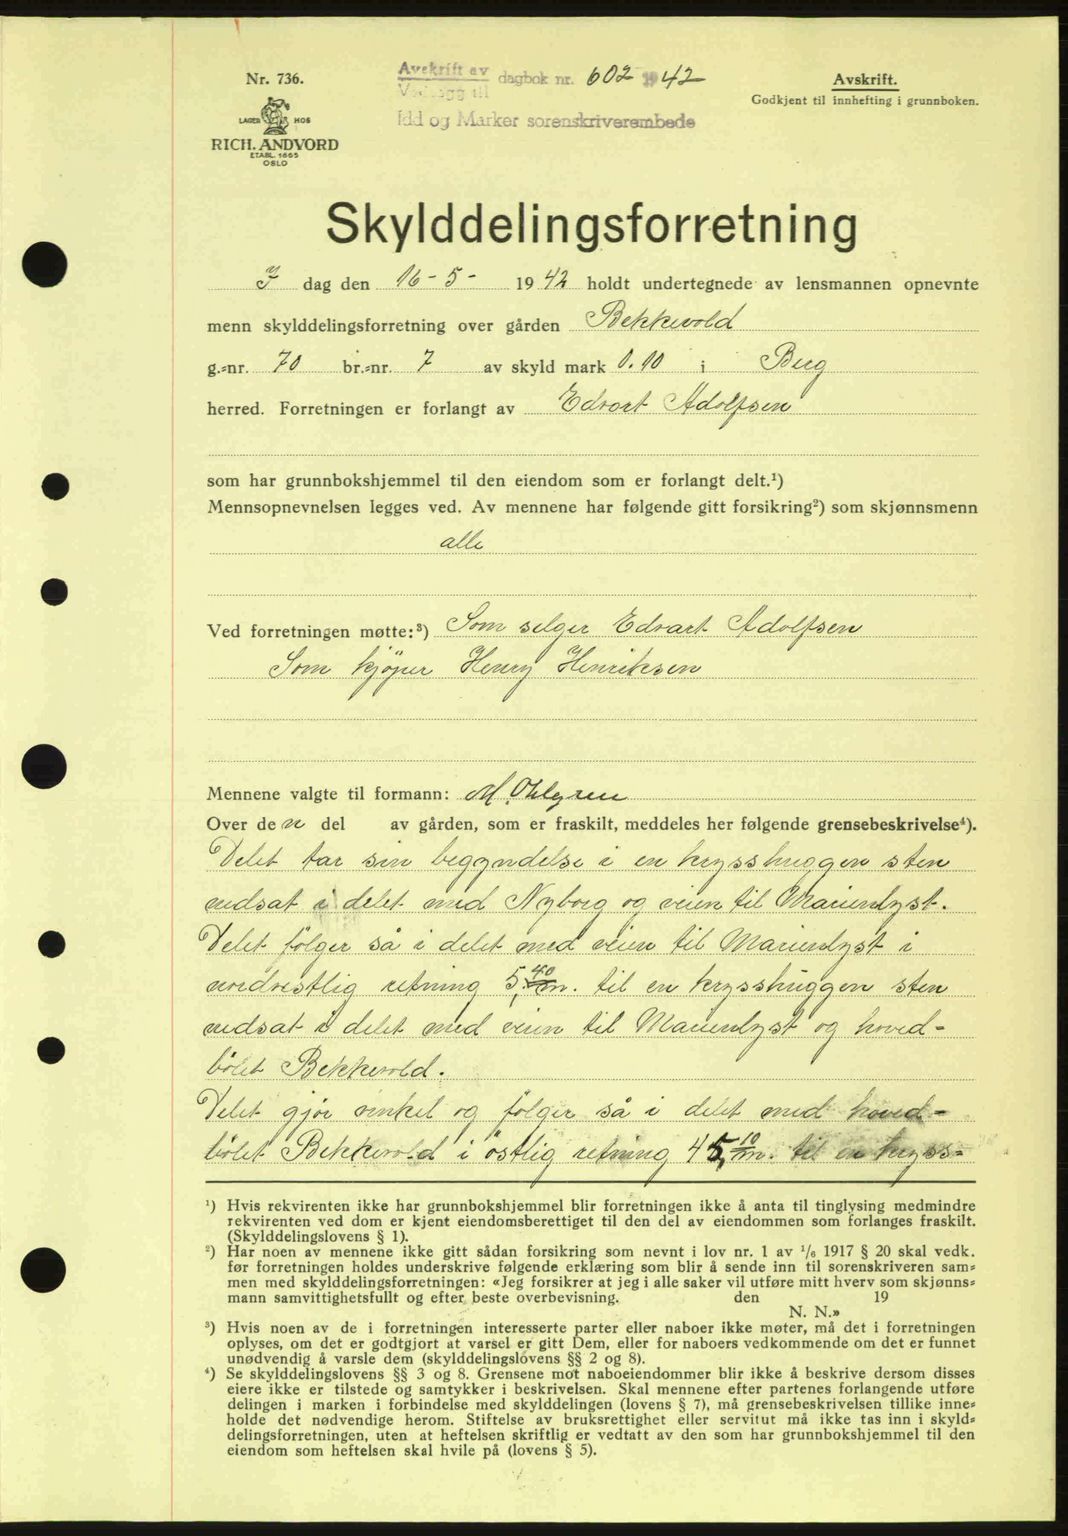 Nr. 736.
LAGER HOS
RICH. ANDVORD
ETABL. 1865
OSLO
Avskrift av dagbok nr. 602 1942
Vedlegg til
Idd og Marker sorenskriverembede
Avskrift.
Godkjent til innhefting i grunnboken.
Skylddelingsforretning
I dag den 16-5- 1942 holdt undertegnede av lensmannen opnevnte
menn skylddelingsforretning over gården Bekkevold
g.=nr. 70 br.=nr. 7 av skyld mark 0.10 i Berg
herred. Forretningen er forlangt av Edvart Adolfsen
som har grunnbokshjemmel til den eiendom som er forlangt delt.¹)
Mennsopnevnelsen legges ved. Av mennene har følgende gitt forsikring²) som skjønnsmenn
alle
Ved forretningen møtte:³) Som selger Edvart Adolfsen
Som kjöper Henry Henriksen
Mennene valgte til formann: M. Ohlgren
Over den del av gården, som er fraskilt, meddeles her følgende grensebeskrivelse⁴).
Delet tar sin begyndelse i en krysshuggen sten
nedsat i delet med Nyborg og veien til Marienlyst.
Delet følger så i delet med veien til Marienlyst i
nordvestlig retning 5,40 m. til en krysshuggen sten
nedsat i delet med veien til Marienlyst og hoved-
bölet Bekkevold.
Delet gjør vinkel og følger så i delet med hoved-
bölet Bekkevold i östlig retning 45,10 m. til en kryss=
¹) Hvis rekvirenten ikke har grunnbokshjemmel blir forretningen ikke å anta til tinglysing medmindre
rekvirenten ved dom er kjent eiendomsberettiget til den del av eiendommen som forlanges fraskilt.
(Skylddelingslovens § 1).
²) Har noen av mennene ikke gitt sådan forsikring som nevnt i lov nr. 1 av ¹/₆ 1917 § 20 skal vedk.
før forretningen holdes underskrive følgende erklæring som blir å sende inn til sorenskriveren sam=
men med skylddelingsforretningen: «Jeg forsikrer at jeg i alle saker vil utføre mitt hverv som skjønns=
mann samvittighetsfullt og efter beste overbevisning. den 19
N. N.»
³) Hvis noen av de i forretningen interesserte parter eller naboer ikke møter, må det i forretningen
oplyses, om det er godtgjort at varsel er gitt Dem, eller for naboers vedkommende om det er funnet
unødvendig å varsle dem (skylddelingslovens §§ 2 og 8).
⁴) Se skylddelingslovens §§ 3 og 8. Grensene mot naboeiendommer blir ikke å beskrive dersom disses
eiere ikke er tilstede og samtykker i beskrivelsen. Skal mennene efter partenes forlangende utføre
delingen i marken i forbindelse med skylddelingen (lovens § 7), må grensebeskrivelsen tillike inne=
holde det nødvendige herom. Stiftelse av bruksrettighet eller servitut må ikke tas inn i skyld=
delingsforretningen, uten at heftelsen skriftlig er vedtatt av den som har grunnbokshjemmel til den
eiendom som heftelsen skal hvile på (lovens § 5).